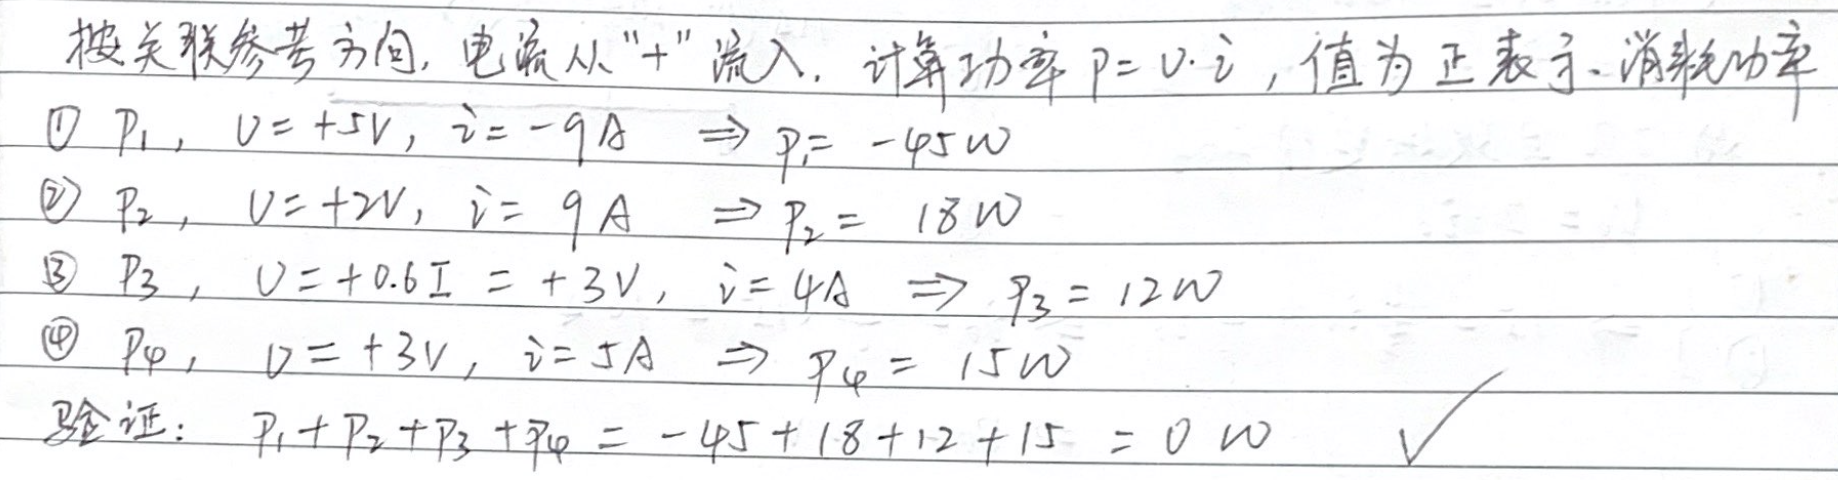 按关联参考方向，电流从"+"流入．计算功率 P=U·i，值为正表示消耗功率
① P₁，U=+5V，i=-9A ⇒ P₁= -45W
② P₂，U=+2V，i= 9A ⇒ P₂= 18W
③ P₃，U=+0.6I = +3V，i=4A ⇒ P₃=12W
④ P₄，U=+3V，i=5A ⇒ P₄= 15W
验证：P₁+P₂+P₃+P₄ = -45+18+12+15 = 0 W ✓